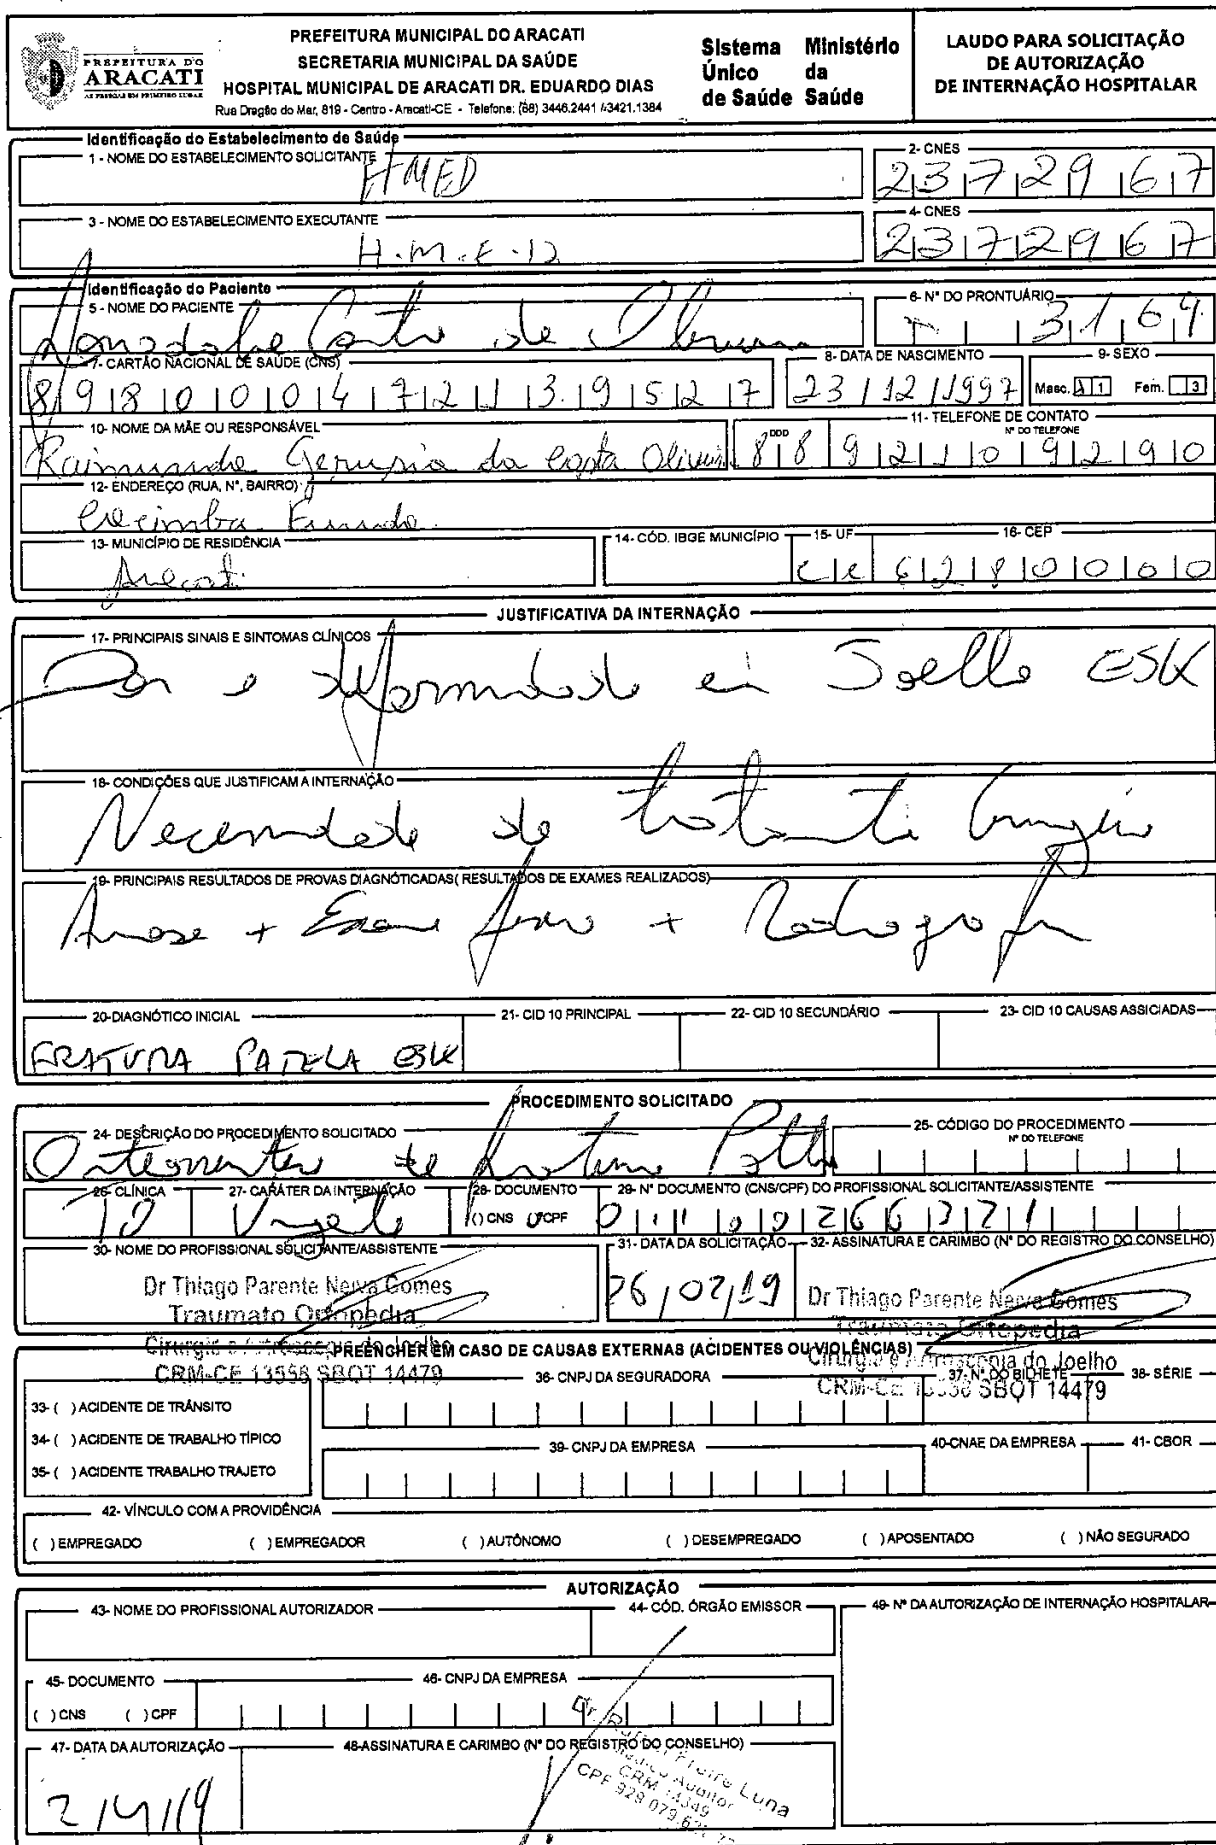 PREFEITURA DO
ARACATI
AS PESSOAS EM PRIMEIRO LUGAR
PREFEITURA MUNICIPAL DO ARACATI
SECRETARIA MUNICIPAL DA SAÚDE
HOSPITAL MUNICIPAL DE ARACATI DR. EDUARDO DIAS
Rua Dragão do Mar, 819 - Centro - Aracati-CE - Telefone: (88) 3446.2441 / 3421.1384
Sistema Único de Saúde
Ministério da Saúde
LAUDO PARA SOLICITAÇÃO
DE AUTORIZAÇÃO
DE INTERNAÇÃO HOSPITALAR
Identificação do Estabelecimento de Saúde
1 - NOME DO ESTABELECIMENTO SOLICITANTE
HMED
2- CNES
2372967
3 - NOME DO ESTABELECIMENTO EXECUTANTE
H.M.E.D
4- CNES
2372967
Identificação do Paciente
5 - NOME DO PACIENTE
de
6- N° DO PRONTUÁRIO
3164
7- CARTÃO NACIONAL DE SAÚDE (CNS)
898000472139527
8- DATA DE NASCIMENTO
23/12/1997
9- SEXO
Masc. 1 Fem. 3
10- NOME DA MÃE OU RESPONSÁVEL
Raimunda Gerusia da Costa Oliveira
11- TELEFONE DE CONTATO
DDD
N° DO TELEFONE
88 92109290
12- ENDEREÇO (RUA, N°, BAIRRO)
Cacimba Funda
13- MUNICÍPIO DE RESIDÊNCIA
Aracati
14- CÓD. IBGE MUNICÍPIO
15- UF
ce
16- CEP
62800000
JUSTIFICATIVA DA INTERNAÇÃO
17- PRINCIPAIS SINAIS E SINTOMAS CLÍNICOS
Dor e deformidade em Joelho ESK
18- CONDIÇÕES QUE JUSTIFICAM A INTERNAÇÃO
Necessidade de tratamento Cirúrgico
19- PRINCIPAIS RESULTADOS DE PROVAS DIAGNÓTICADAS( RESULTADOS DE EXAMES REALIZADOS)
+ Exame físico + Radiografia
20-DIAGNÓTICO INICIAL
FRATURA PATELA ESK
21- CID 10 PRINCIPAL
22- CID 10 SECUNDÁRIO
23- CID 10 CAUSAS ASSICIADAS
PROCEDIMENTO SOLICITADO
24- DESCRIÇÃO DO PROCEDIMENTO SOLICITADO
de fratura Patela
25- CÓDIGO DO PROCEDIMENTO
N° DO TELEFONE
26- CLÍNICA
27- CARÁTER DA INTERNAÇÃO
Urgente
28- DOCUMENTO
( ) CNS ( ) CPF
29- N° DOCUMENTO (CNS/CPF) DO PROFISSIONAL SOLICITANTE/ASSISTENTE
30- NOME DO PROFISSIONAL SOLICITANTE/ASSISTENTE
Dr Thiago Parente Neiva Gomes
Traumato Ortopedia
Cirurgia e Artroscopia do Joelho
CRM-CE 13558 SBOT 14479
31- DATA DA SOLICITAÇÃO
26/02/19
32- ASSINATURA E CARIMBO (N° DO REGISTRO DO CONSELHO)
Dr Thiago Parente Neiva Gomes
Traumato Ortopedia
Cirurgia e Artroscopia do Joelho
CRM-CE 13558 SBOT 14479
PREENCHER EM CASO DE CAUSAS EXTERNAS (ACIDENTES OU VIOLÊNCIAS)
33- ( ) ACIDENTE DE TRÂNSITO
34- ( ) ACIDENTE DE TRABALHO TÍPICO
35- ( ) ACIDENTE TRABALHO TRAJETO
36- CNPJ DA SEGURADORA
37- N° DO BILHETE
38- SÉRIE
39- CNPJ DA EMPRESA
40-CNAE DA EMPRESA
41- CBOR
42- VÍNCULO COM A PROVIDÊNCIA
( ) EMPREGADO ( ) EMPREGADOR ( ) AUTÔNOMO ( ) DESEMPREGADO ( ) APOSENTADO ( ) NÃO SEGURADO
AUTORIZAÇÃO
43- NOME DO PROFISSIONAL AUTORIZADOR
44- CÓD. ÓRGÃO EMISSOR
49- N° DA AUTORIZAÇÃO DE INTERNAÇÃO HOSPITALAR
45- DOCUMENTO
( ) CNS ( ) CPF
46- CNPJ DA EMPRESA
47- DATA DA AUTORIZAÇÃO
2/4/19
48-ASSINATURA E CARIMBO (N° DO REGISTRO DO CONSELHO)
Dr. Rafael Freire Luna
Médico Auditor
CRM 14349